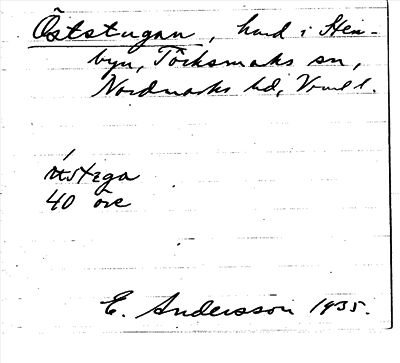 Öststugan, hmd i Sten-
byn, Töcksmarks sn,
Nordmarks hd, Vrml l.
40 öre
E. Andersson 1935.